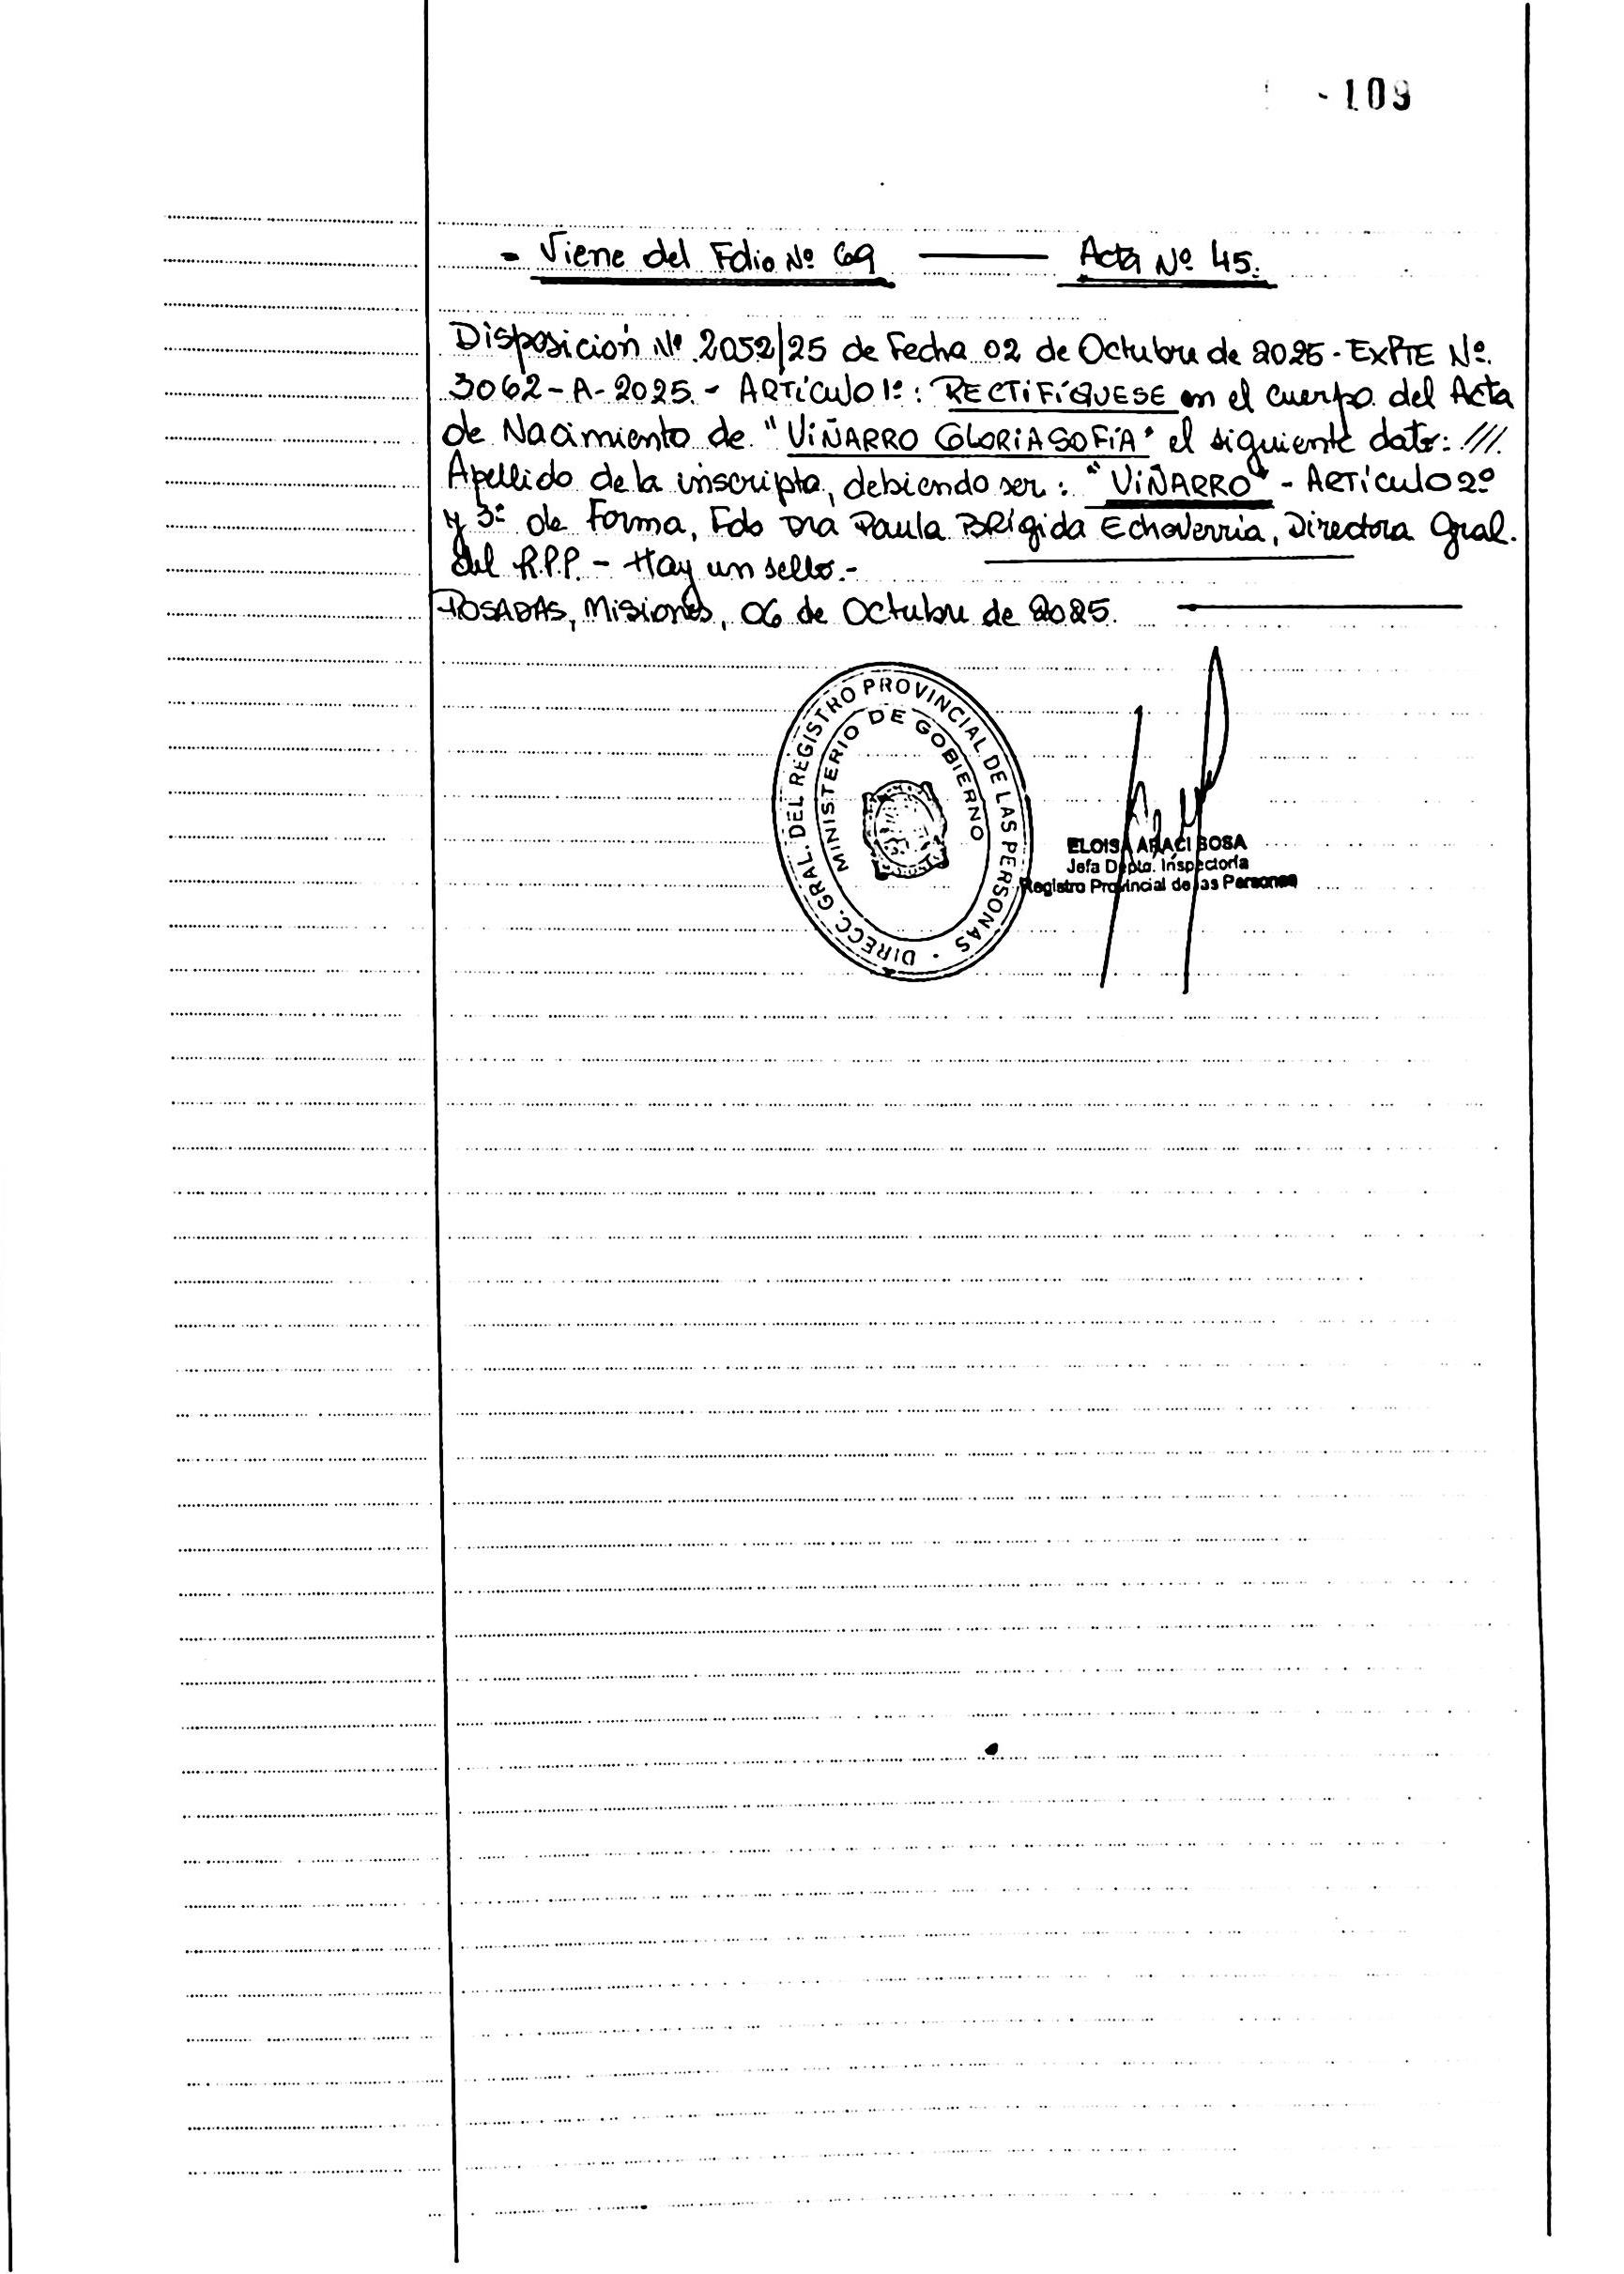 -109
- Viene del Folio Nº 69 — Acta Nº 45.
Disposición Nº 2052/25 de Fecha 02 de Octubre de 2025 - EXPTE Nº.
3062-A-2025. - ARTÍCULO 1º: RECTIFÍQUESE en el cuerpo del Acta
de Nacimiento de "VIÑARRO GLORIA SOFÍA" el siguiente dato: ///.
Apellido de la inscripta, debiendo ser: "VIÑARRO" - ARTÍCULO 2º
y 3º de Forma, Fdo Dra Paula BRígida Echeverria, Directora Gral.
del R.P.P. - Hay un sello.-
POSADAS, Misiones, 06 de Octubre de 2025.
DIRECC. GRAL. DEL REGISTRO PROVINCIAL DE LAS PERSONAS
MINISTERIO DE GOBIERNO
ELOISA ARACI SOSA
Jefa Dpto. Inspectoría
Registro Provincial de las Personas